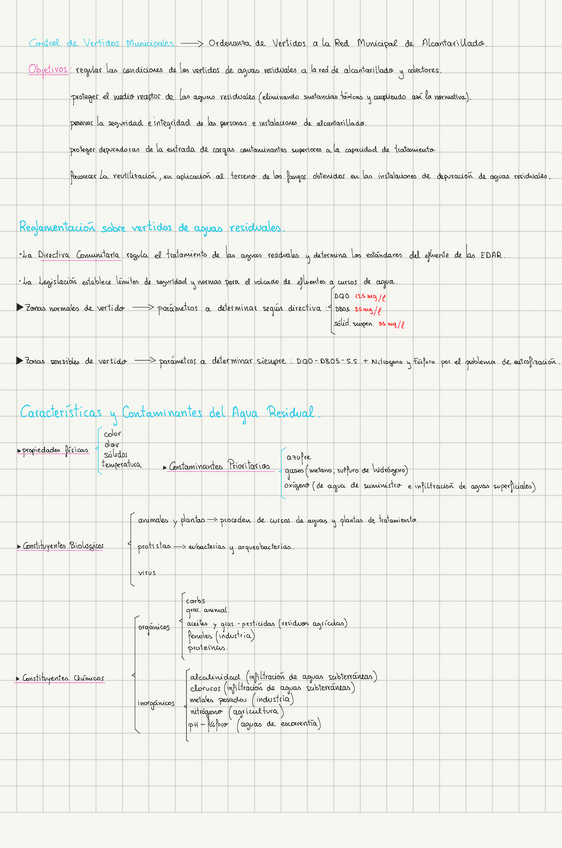 Control de Vertidos Municipales → Ordenanza de Vertidos a la Red Municipal de Alcantarillado.
Objetivos: regular las condiciones de los vertidos de aguas residuales a la red de alcantarillado y colectores.
proteger el medio receptor de las aguas residuales (eliminando sustancias tóxicas y cumpliendo así la normativa).
preservar la seguridad e integridad de las personas e instalaciones de alcantarillado.
proteger depuradoras de la entrada de cargas contaminantes superiores a la capacidad de tratamiento
favorecer la reutilización, en aplicación al terreno de los fangos obtenidos en las instalaciones de depuración de aguas residuales.
Reglamentación sobre vertidos de aguas residuales.
·La Directiva Comunitaria regula el tratamiento de las aguas residuales y determina los estándares del efluente de las EDAR.
·La Legislación establece límites de seguridad y normas para el volcado de efluentes a cursos de agua.
▶Zonas normales de vertido → parámetros a determinar según directiva
DQO 125 mg/l
DBO5 25 mg/l
sólid. suspen. 35 mg/l
▶Zonas sensibles de vertido → parámetros a determinar siempre: DQO-DBO5-S.S + Nitrógeno y Fósforo por el problema de eutrofización.
Características y Contaminantes del Agua Residual.
▸propiedades físicas
color
olor
sólidos
temperatura
▸Contaminantes Prioritarios
azufre
gases (metano, sulfuro de hidrógeno)
oxígeno (de agua de suministro e infiltración de aguas superficiales)
▸Constituyentes Biológicos
animales y plantas → proceden de cursos de aguas y plantas de tratamiento
protistas → eubacterias y arqueobacterias.
virus
▸Constituyentes Químicos
orgánicos
carbs
gras. animal
aceites y gras. - pesticidas (residuos agrícolas)
fenoles (industria)
proteínas.
inorgánicos
alcalinidad (infiltración de aguas subterráneas)
cloruros (infiltración de aguas subterráneas)
metales pesados (industria)
nitrógeno (agricultura)
pH - fósforo (aguas de escorrentía)